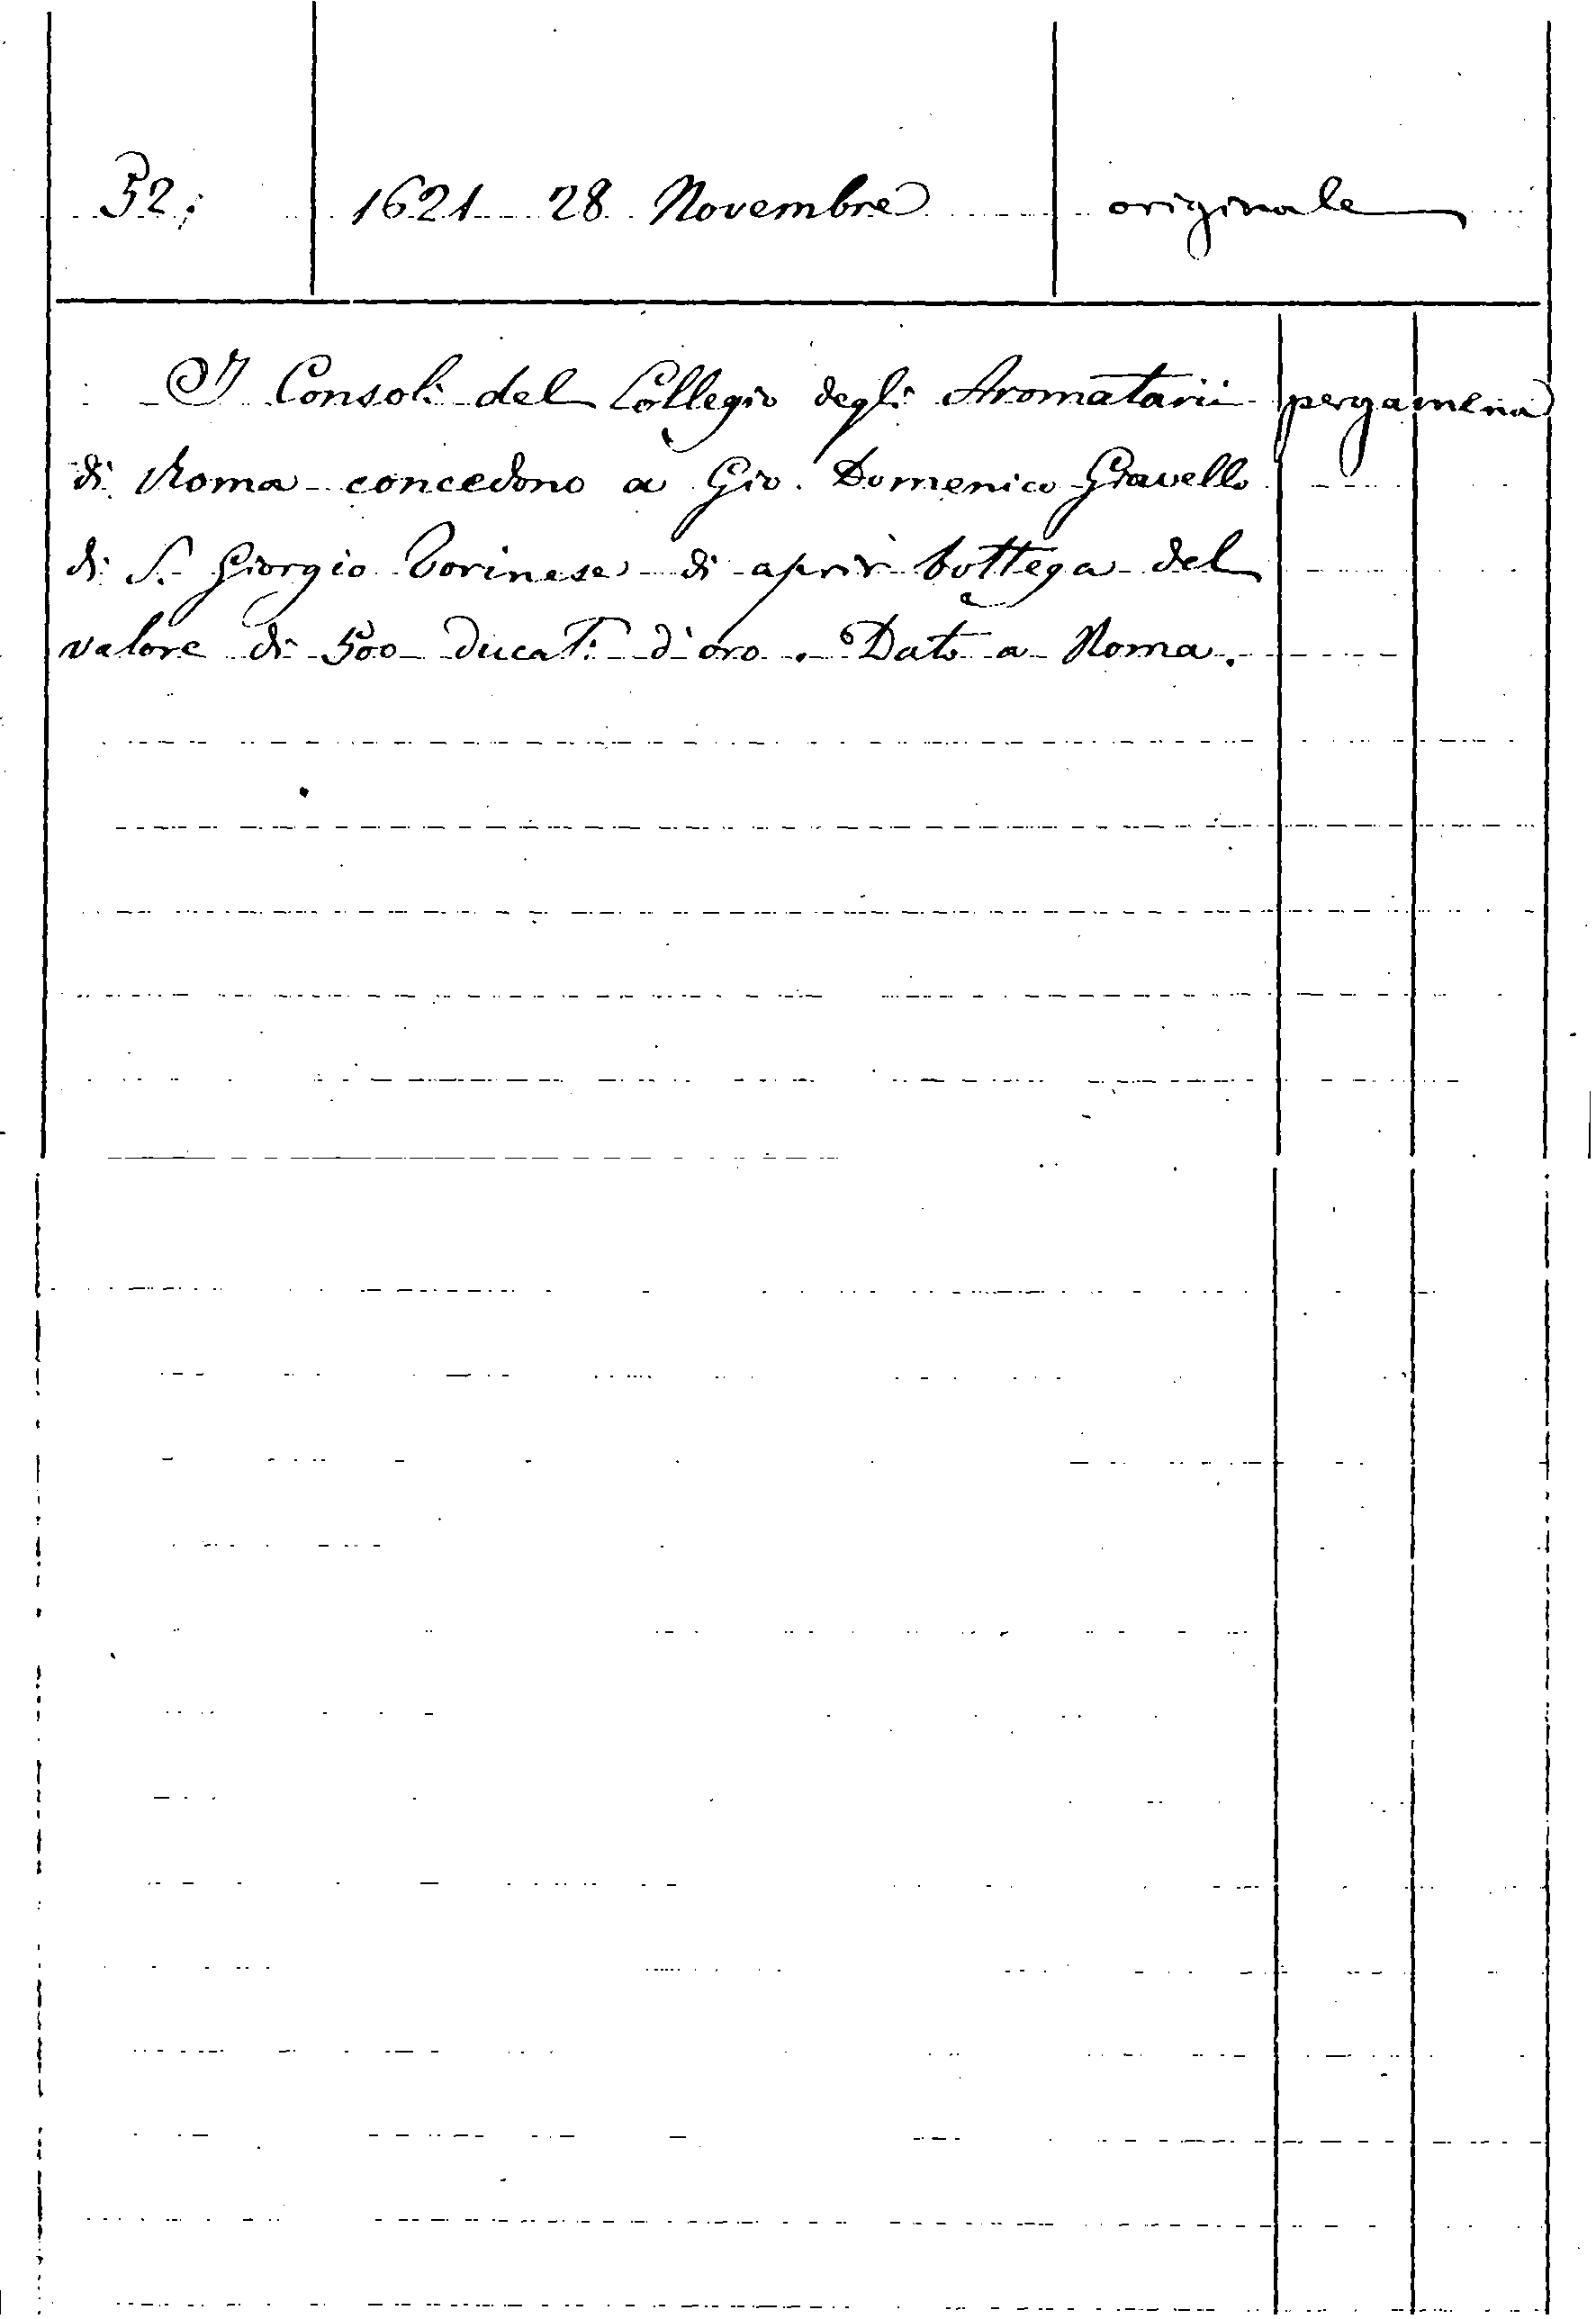 52; 1621 28 Novembre originale
I Consoli del Collegio degli Aromatarii pergamena
di Roma concedono a Gio. Domenico Gravello
di S. Giorgio Torinese di aprir bottega del
valore di 500 ducati d'oro. Dato a Roma.